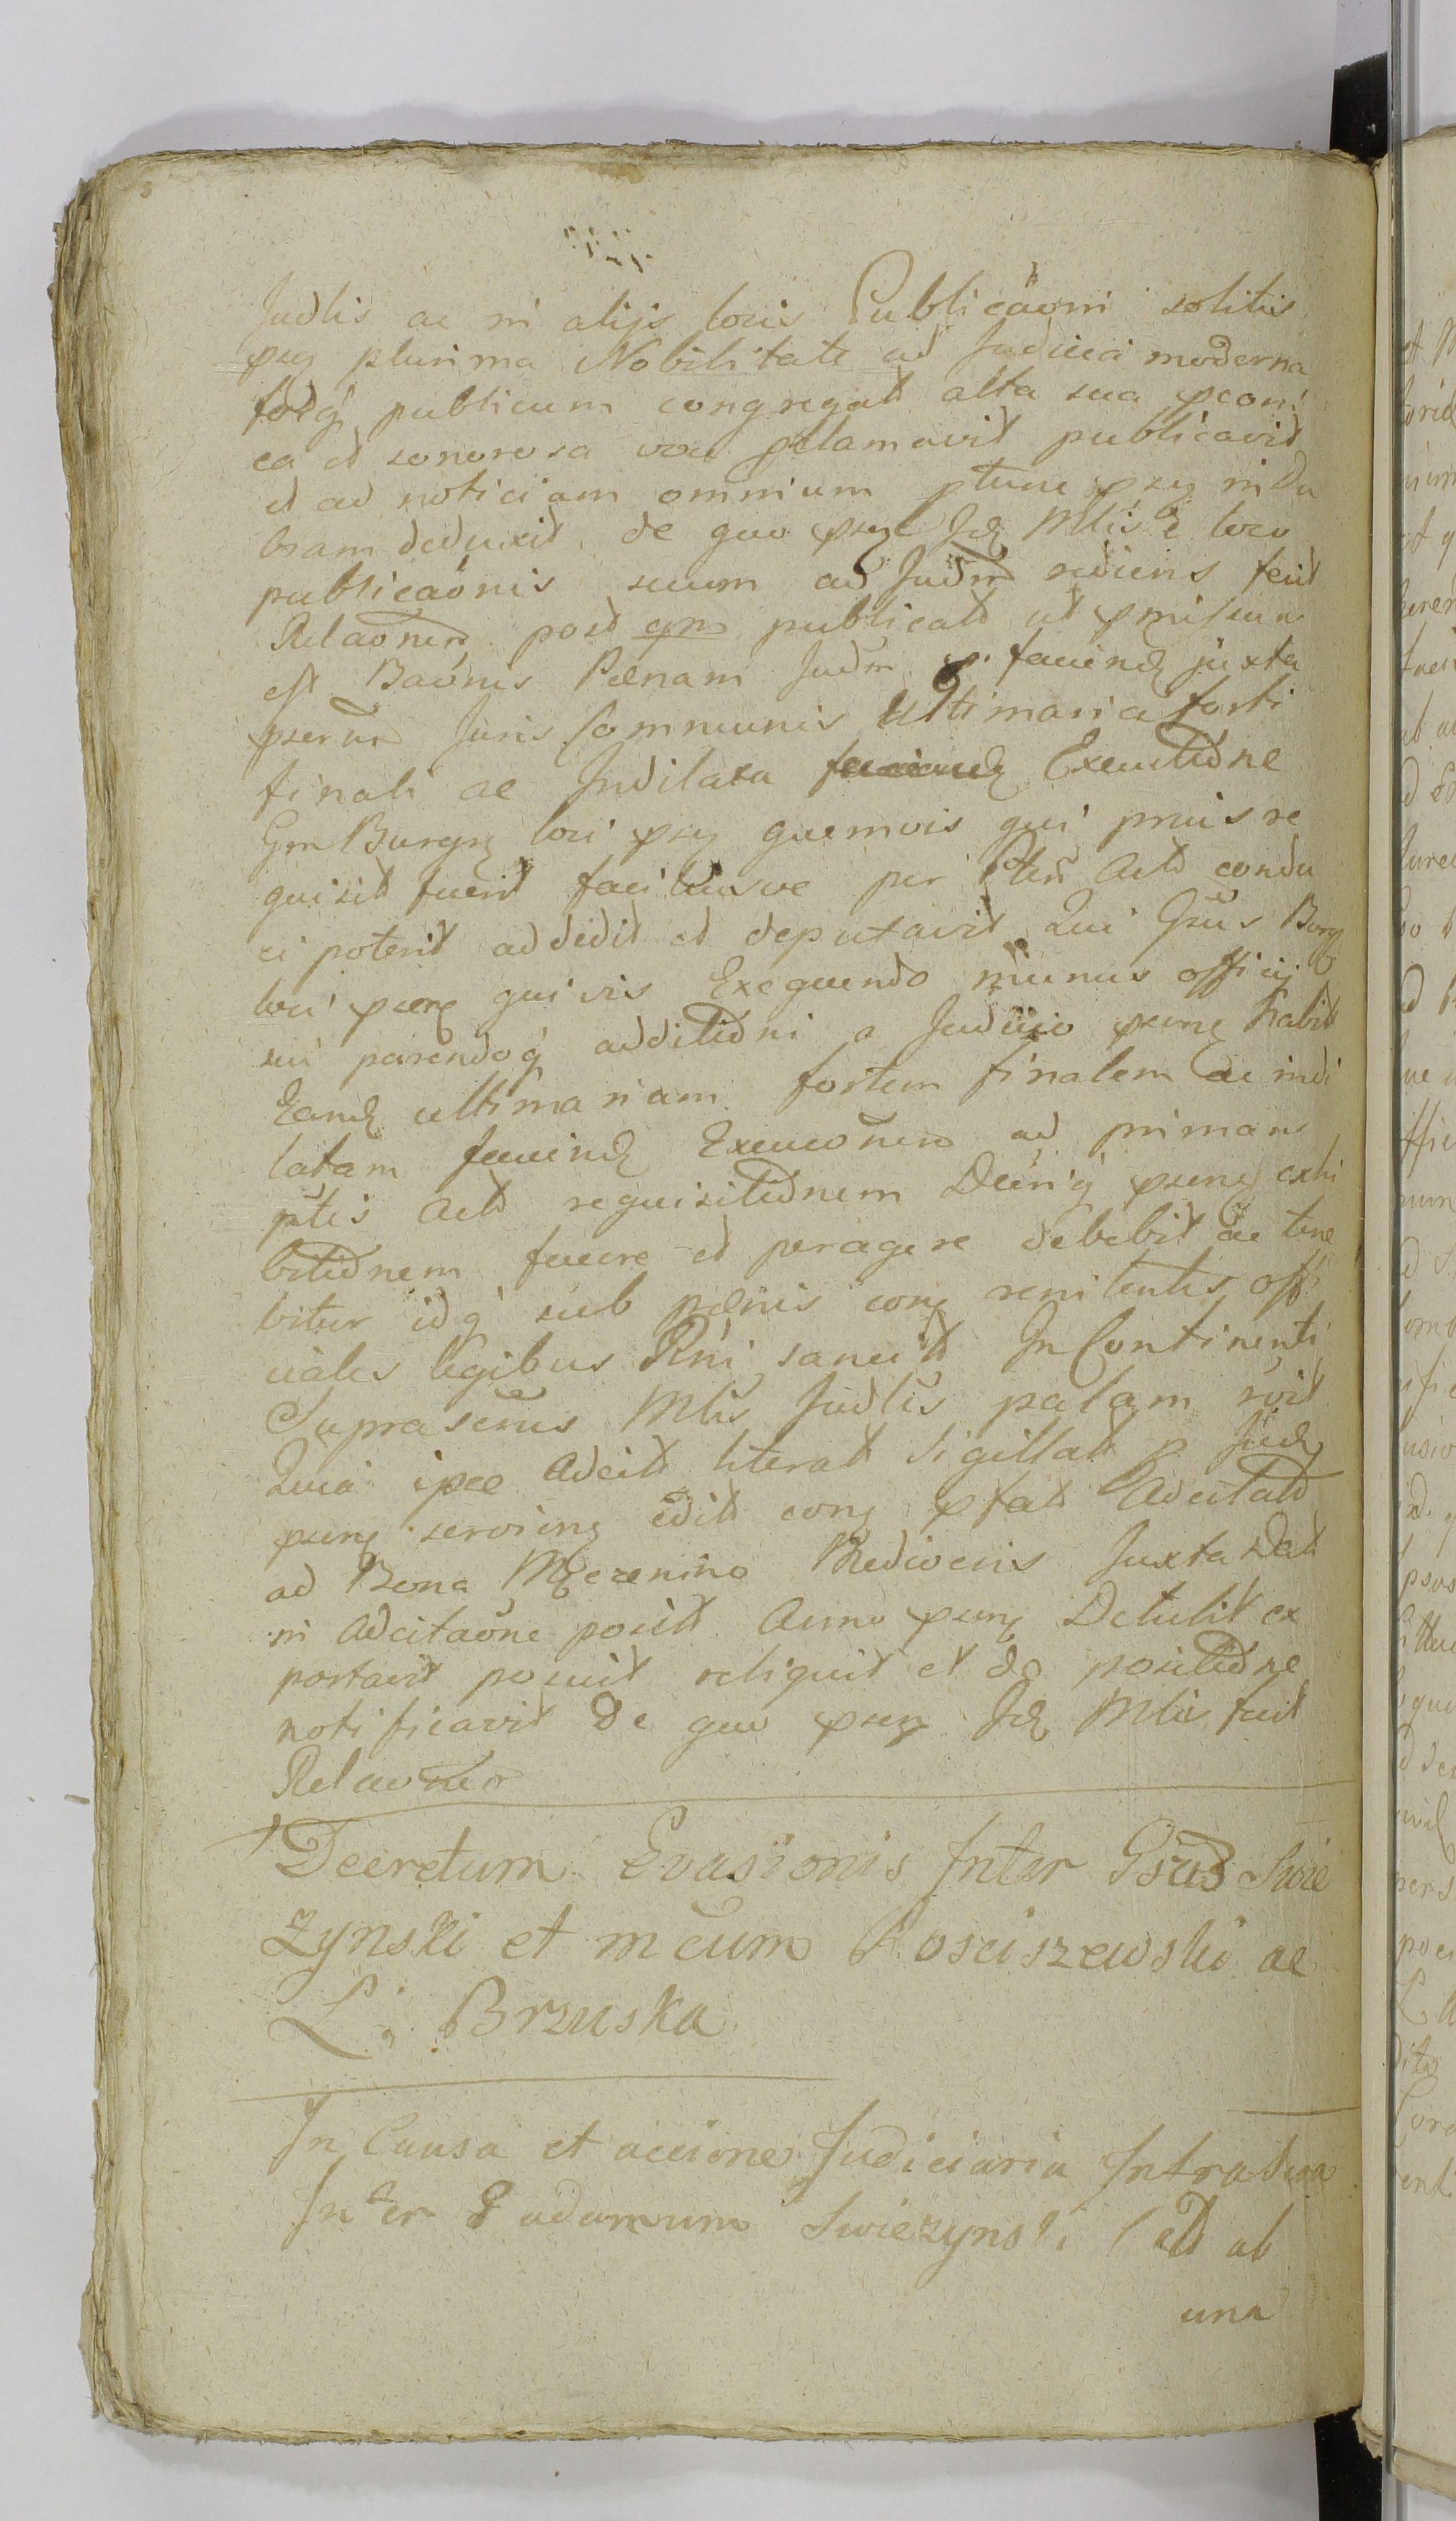 Judlis ac in alijs locis Publicaoni solitis
psq plurima Nobilitate ad Judicia moderna
publicum congregatt alta sua
ea et sonorosa voce pclamavit publicavit
et ad noticiam omnium ptunc psq indu
bram deduxit de quo psq Idq Mlis e loco
publicaonis suum ad Judm rediens fecit
Relaonem post qm publicatt ut pmissum
est Baonis Pænam Judm p. faciendq juxta
pserum Juris Communis Ultimaria forti
finali ac Indilata Executidne
Gm Burgq loci psq quemvis qui prius re
quisit fuerit faciliusve per Pten Actt condu
ci poterit addidit et deputavit Qui Gsus Burg
loci quivis Exequendo munus officij
sui parendoq additidni a Judicio psenq habit
Eandq ultimariam fortem finalem ac indi
latam faciendq Execuonem ad primam
ptis Actt requisitidnem Decriq psenq exhi
bitidnem facere et peragere debebit ac tene
bitur idq sub pænis conq renitentes offi
ciales legibus Rni sancitt In Continenti
Suprascrius Mlis Judlis palam rcit
Quia ipse Adcitt literatt Sigillatt p Judq
psenq servienq editt conq pfatt Adcitatt
ad Bona Mierzenino Redivivis Juxta Datt
in Adcitaone positt Anno psenq Detulit ex
portavit posuit reliquit et de positidne
notificavit De quo psq Idq Mlis fecit
Relaonem
Decretum Evasionis Inter Gsus Swie
zynski et mcum Kosciszewski ac
L: Brzuska
In Causa et accione Judiciaria Intrasca
Inter G adamum Swiezynski Actt ab
una